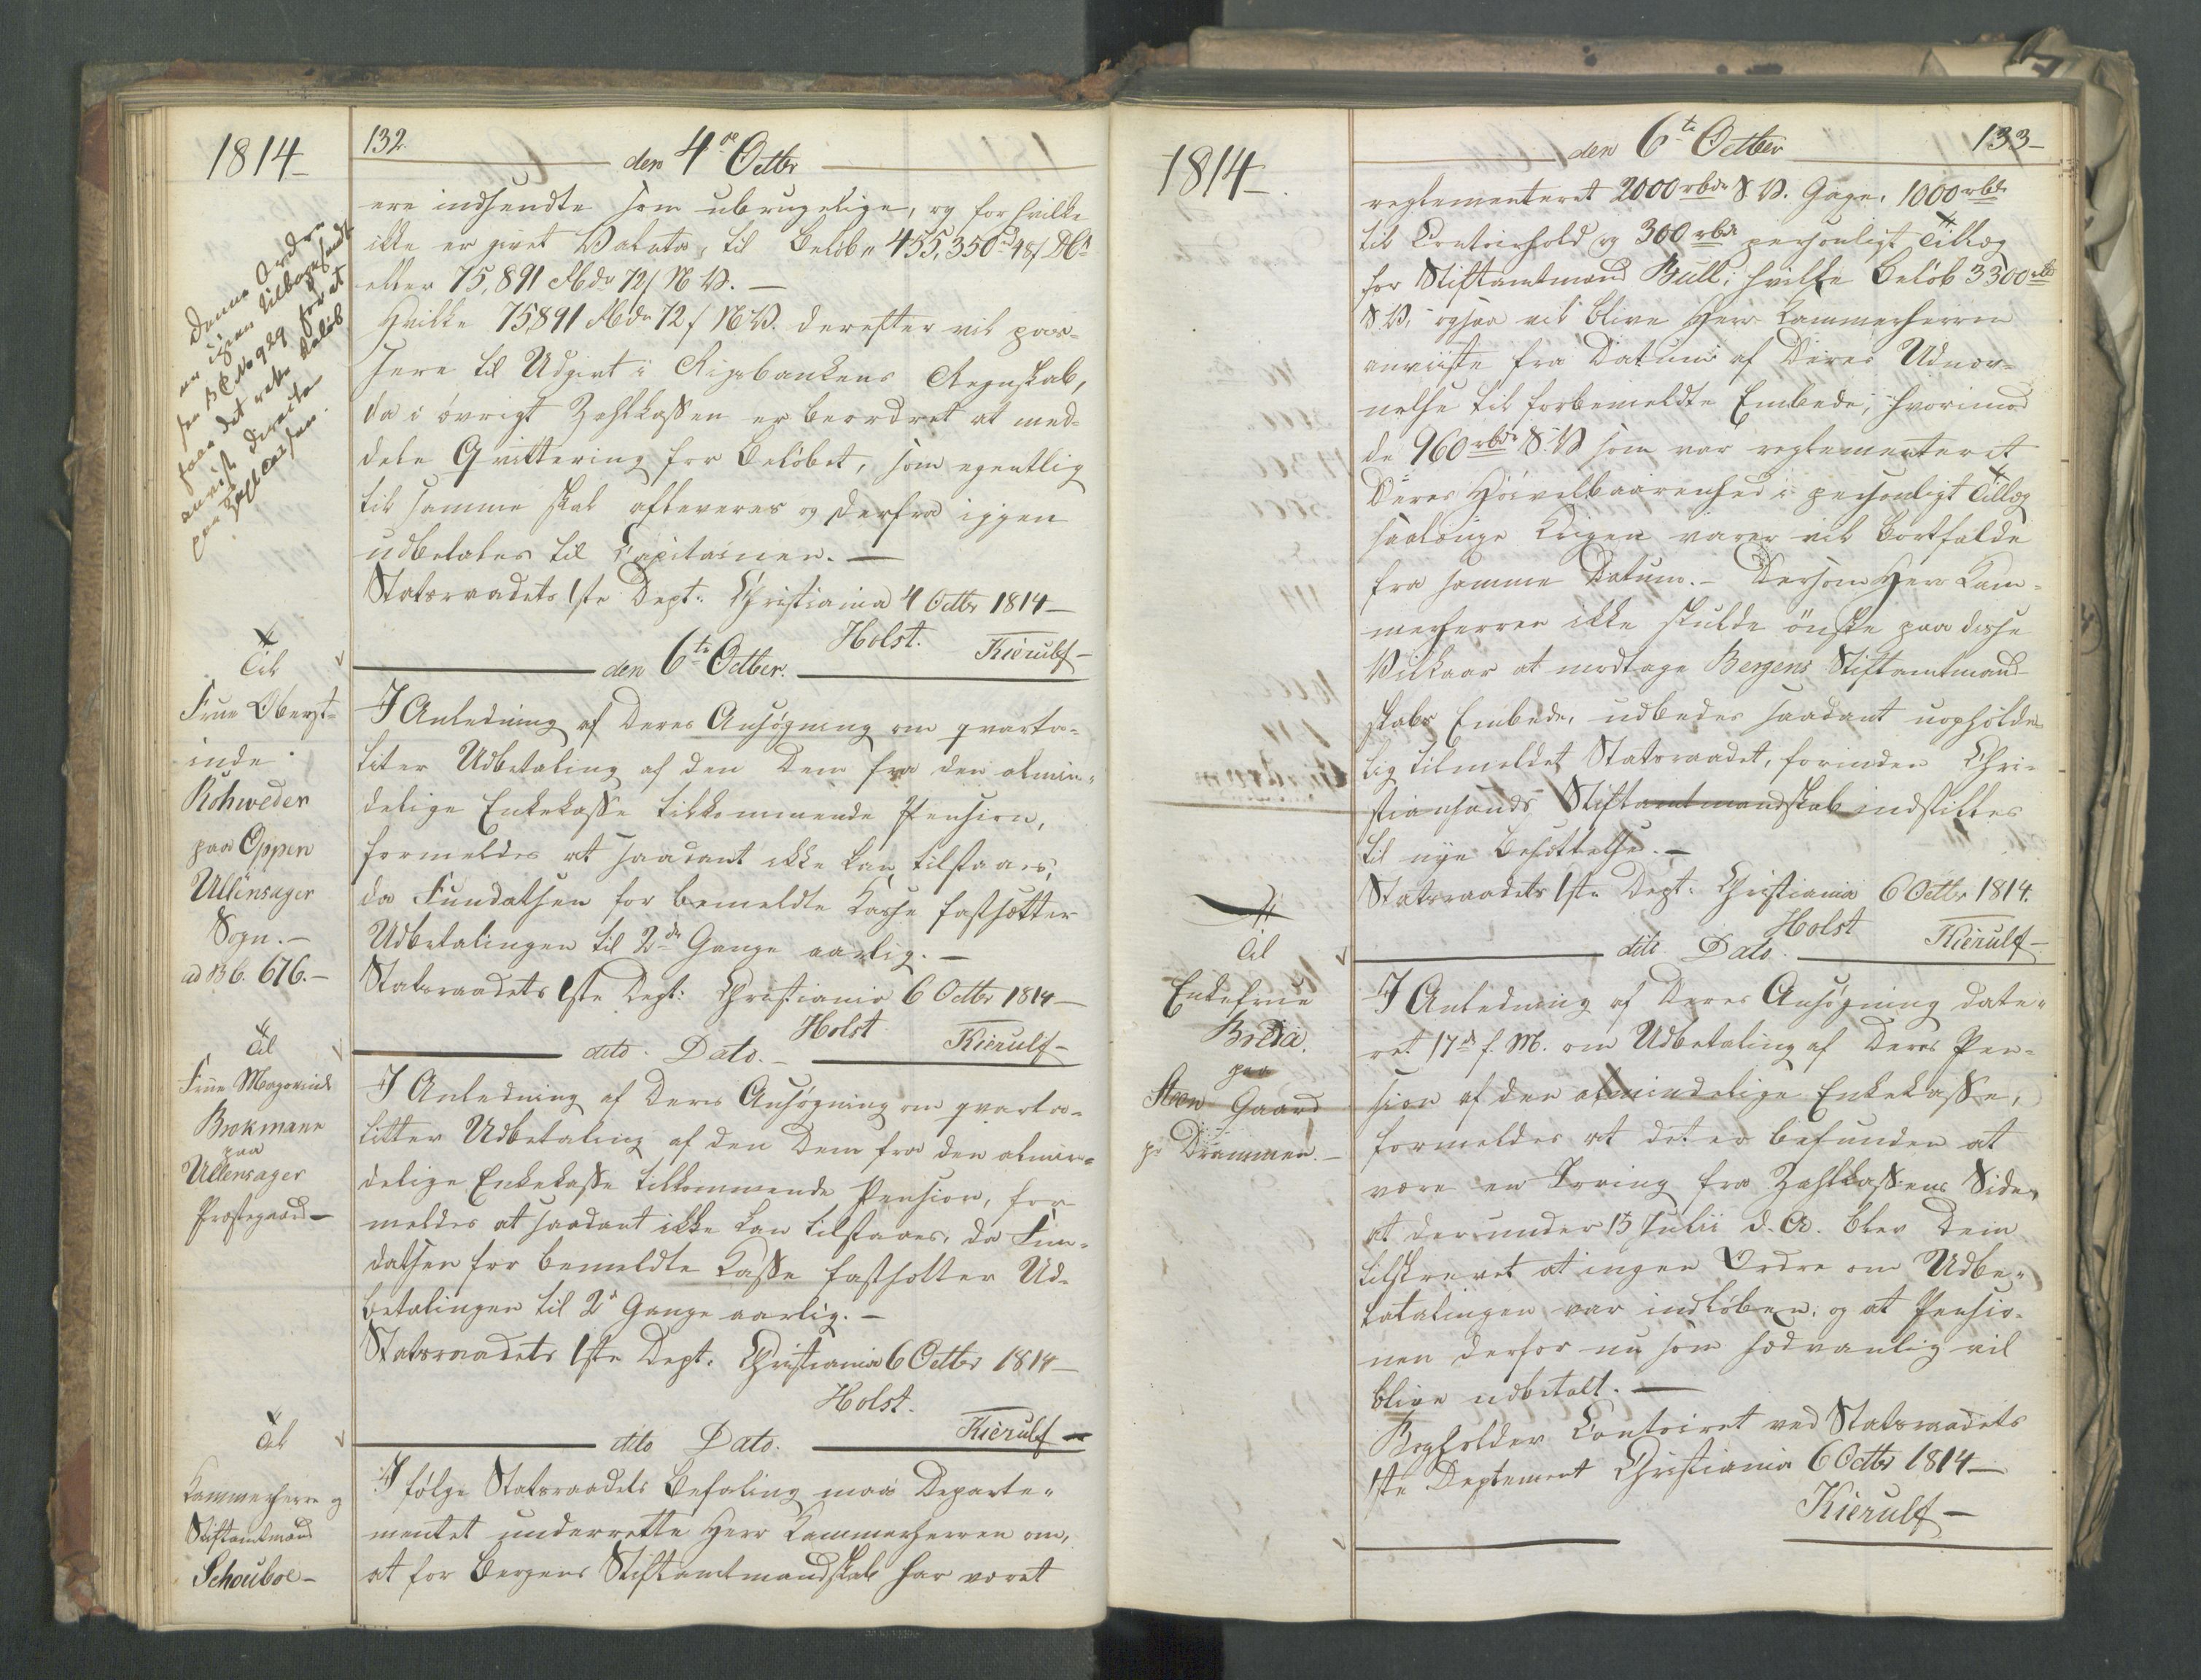 1814
132.
den 4de Octbr
ere indsendte som ubrugelige, og for hvilke
ikke er givet Valuta, til Beløb 455,350 rd 48 s DCt
eller 75,891 Rbdr 72 s N.V. —
Hvilke 75891 Rbdr 72 s N.V. derefter vil pas-
sere til Udgivt i Rigsbankens Regnskab,
da i øvrigt Zahlkassen er beordret at med-
dele Qvittering for Beløbet, som egentlig
til samme skal afleveres og derfra igjen
udbetales til Capitainen. —
Statsraadets 1ste Dept: Christiania 4 Octbr 1814 —
Holst. Kierulf —
Denne Ordre
er igjen tilbagesendt
B C No 929 for at
faae det rette Beløb
anviist directe
paa Zahlkassen.
den 6te Octber.
Til
Frue Oberst-
inde
Rohweder
paa Oppen
Ullensager
Sogn. —
ad B 6. 676. —
I Anledning af Deres Ansøgning om qvarta-
liter Udbetaling af den Dem fra den almin-
delige Enkekasse tilkommende Pension,
formeldes at saadant ikke kan tilstaaes,
da Fundatsen for bemeldte Kasse fastsætter
Udbetalingen til 2de Gange aarlig. —
Statsraadets 1ste Dept: Christiania 6 Octbr 1814 —
Holst Kierulf —
dito Dato. —
Til
Frue Majorinde
Brokmann
paa
Ullensager
Præstegaard —
I Anledning af Deres Ansøgning om qvarta-
litter Udbetaling af den Dem fra den almin-
delige Enkekasse tilkommende Pension, for-
meldes at saadant ikke kan tilstaaes, da Fun-
datsen for bemeldte Kasse fastsetter Ud-
betalingen til 2de Gange aarlig. —
Statsraadets 1ste Dept: Christiania 6 Octbr 1814 —
Holst. Kierulf —
dito Dato.
Til
Kammerherre og
Stiftamtmand
Schouboe —
I følge Statsraadets Befaling maa Departe-
mentet underrette Herr Kammerherren om,
at for Bergens Stiftamtmandskab har været
1814 —
den 6te Octber
133 —
reglementeret 2000 rbdr S.V. Gage, 1000 rbdr
til Contoirhold og 300 rbdr personligt Tillæg
for Stiftamtmand Bull; hvilke Beløb 3300 rbdr
S.V. ogsaa vil blive Herr Kammerherren
anviiste fra Datum af Deres Udnæv-
nelse til forbemeldte Embede, hvorimod
de 960 rbdr S.V. som var reglementeret
Deres Høivelbaarenhed i personligt Tillæg
saalænge Krigen varer vil bortfalde
fra samme Datum. — Dersom Herr Kam-
merherren ikke skulde ønske paa disse
Vilkaar at modtage Bergens Stiftamtmand-
skabs Embede, udbedes saadant uopholde-
lig tilmeldet Statsraadet, forinden Chri-
stiansands Stiftamtmandskab indstilles
til nye Besættelse. —
Statsraadets 1ste Dept: Christiania 6 Octbr 1814.
Holst Kierulf —
dito Dato.
Til
Enkefrue
Bredia.
paa
Gaard
pr Drammen. —
I Anledning af Deres Ansøgning date-
ret 17de f. M. om Udbetaling af Deres Pen-
sion af den almindelige Enkekasse,
formeldes at det er befunden at
være en Irring fra Zahlkassens Side,
at der under 15 Julii d. A. blev Dem
tilskrevet at ingen Ordre om Udbe-
talingen var indløben, og at Pensio-
nen derfor nu som sædvanlig vil
blive udbetalt. —
Bogholder Contoiret ved Statsraadets
1ste Deptement Christiania 6 Octbr 1814 —
Kierulf —